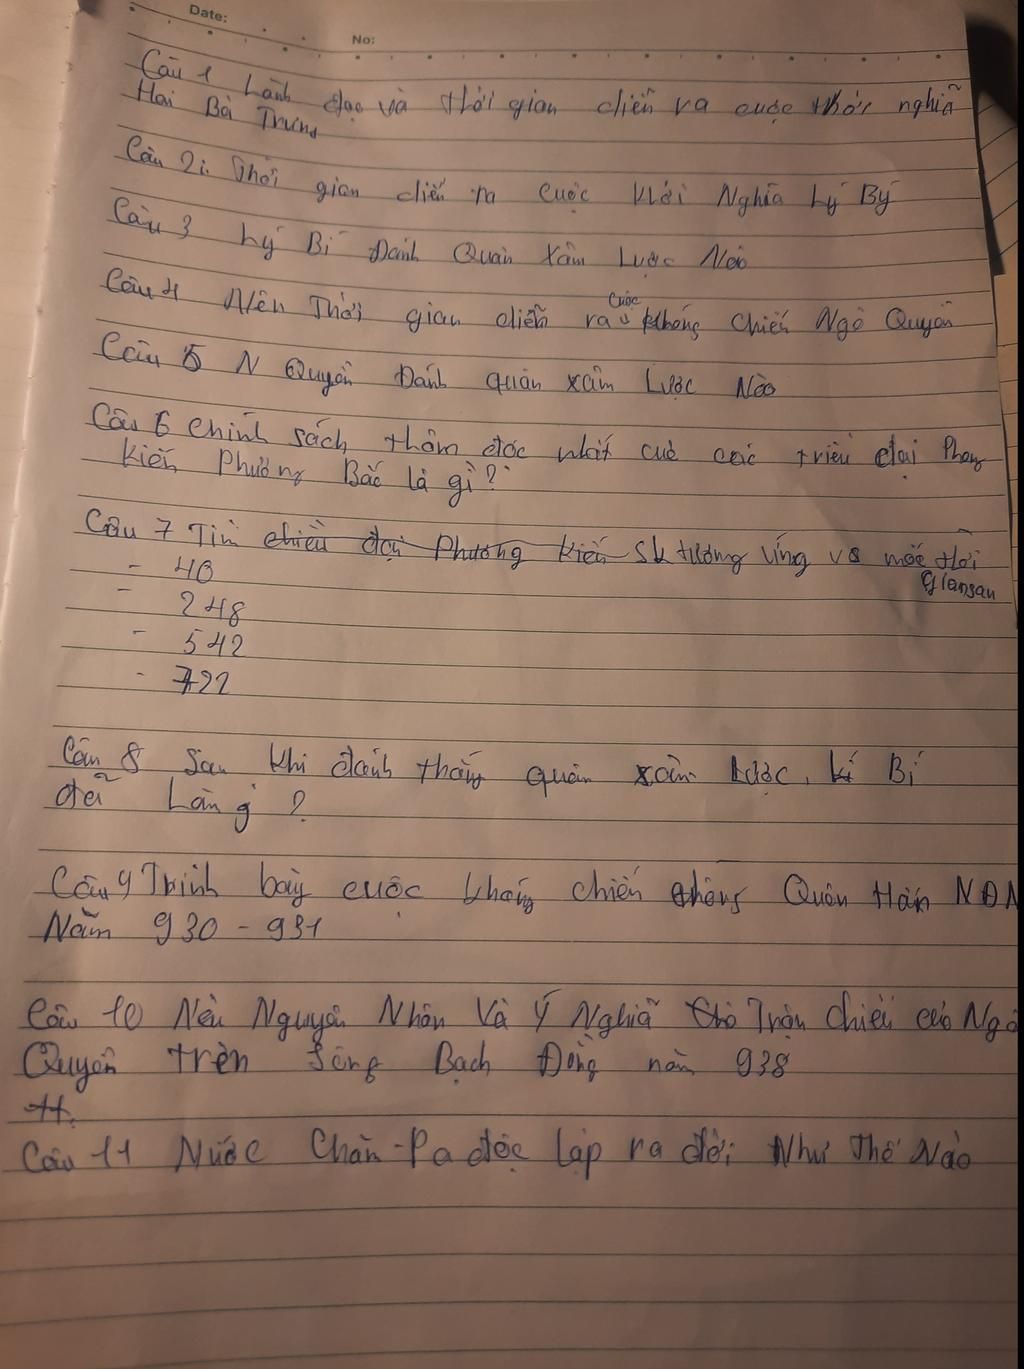 Date:
No:
Câu 1 Lãnh đạo và thời gian diễn ra cuộc khởi nghĩa
Hai Bà Trưng
Câu 2: Thời gian diễn ra Cuộc Khởi Nghĩa Lý Bý
Câu 3 Lý Bí Đánh Quân Xâm Lược Nào
Câu 4 Nên Thời gian diễn ra Cuộc kháng Chiến Ngô Quyền
Câu 5 N Quyền Đánh quân xâm Lược Nào
Câu 6 Chính sách thâm độc nhất của các triều đại Phong
kiến Phương Bắc là gì?
Câu 7 Tìm chiều đại Phương kiến sk tương ứng vs mốc thời
giansau
- 40
- 248
- 542
- 722
Câu 8 Sau khi đánh thắng quân xâm lược, Lí Bí
đã Làn g ?
Câu 9 Trình bày cuộc kháng chiến chống Quân Hán NĐN
Năm 930 - 931
Câu 10 Nêu Nguyên Nhân Và Ý Nghĩa Trận Chiến của Ngô
Quyền trên Sông Bạch Đằng năm 938
11.
Câu 11 Nước Chăn-Pa độc lập ra đời Như Thế Nào